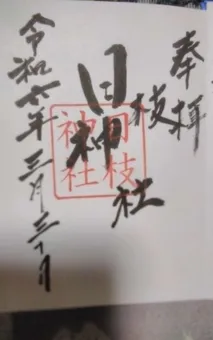 奉拝
日枝神社
日枝
神社
令和六年三月三十日